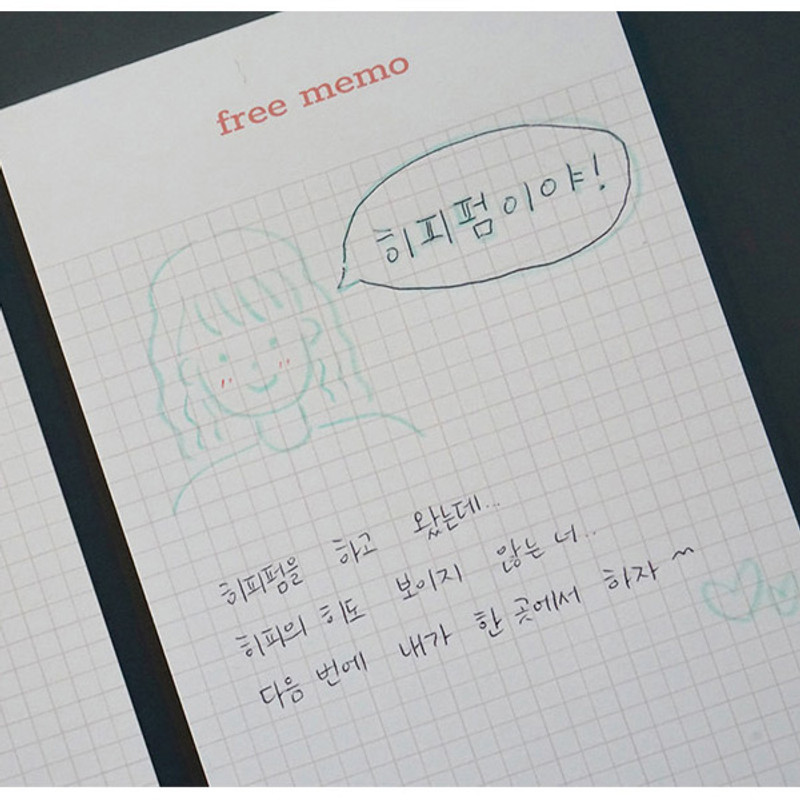 free memo
히피펌이야!
히피펌을 하고 왔는데...
히피의 히도 보이지 않는 너...
다음 번에 내가 한 곳에서 하자~